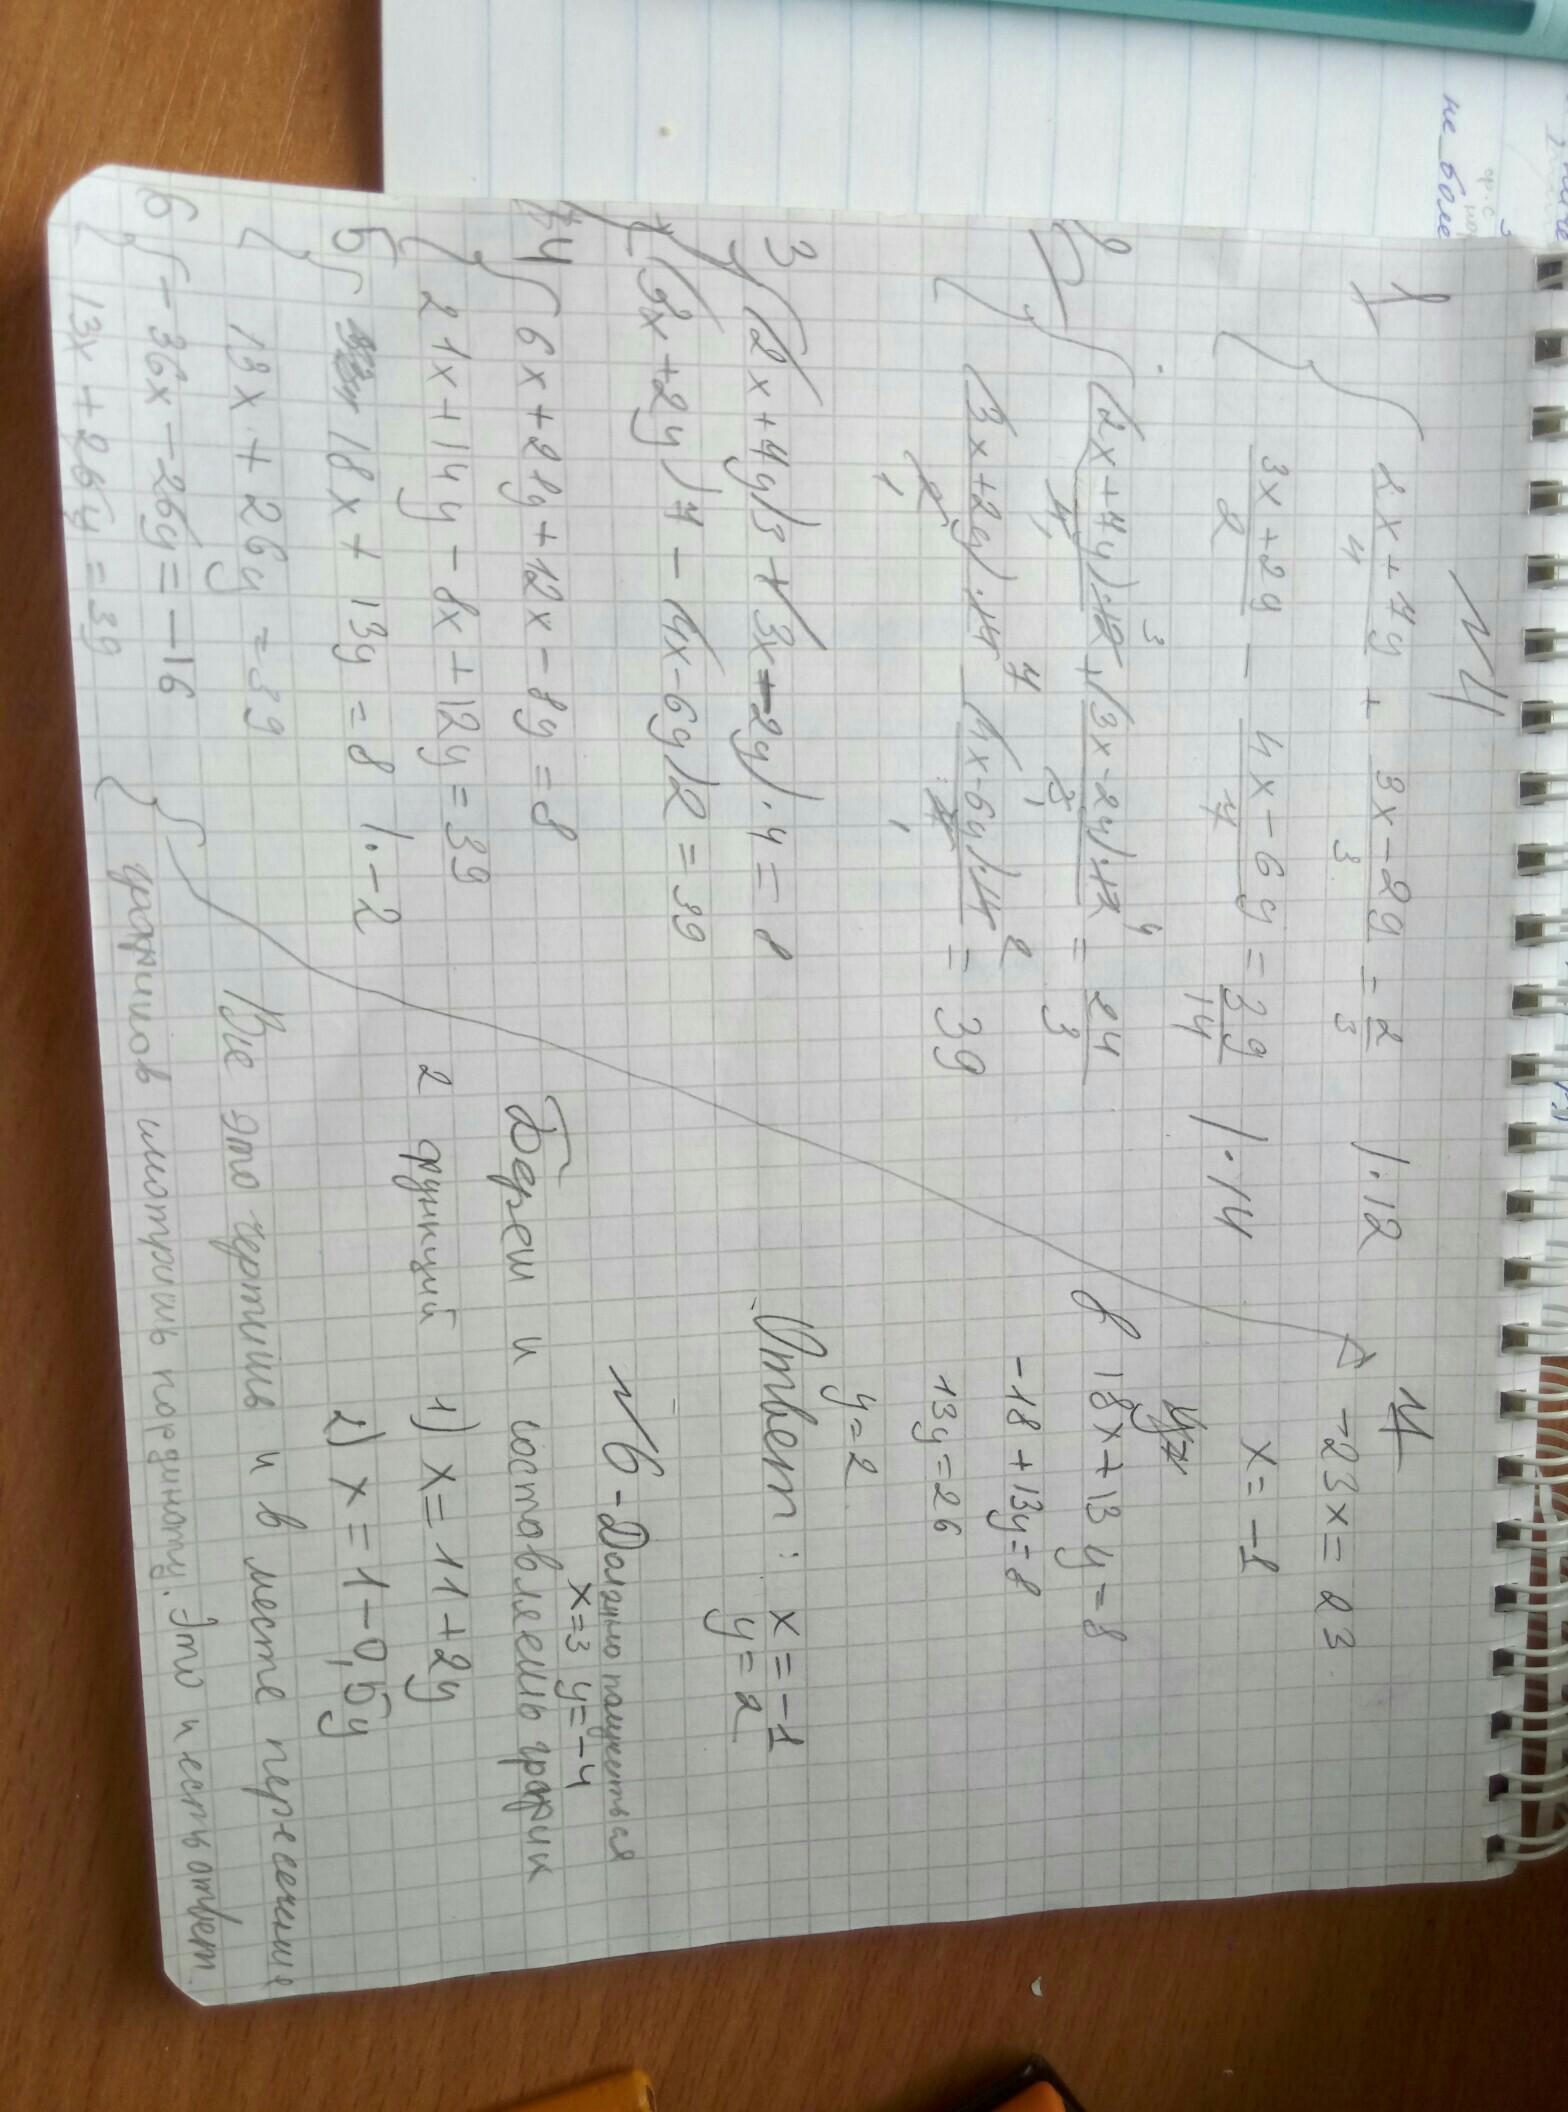 не боле
N4
1 { (2x+7y)/4 + (3x-2y)/3 = 2/3 |·12
(3x+2y)/2 - (4x-6y)/7 = 39/14 |·14
2 { (2x+7y)·12³/4₁ + (3x-2y)·12⁴/3₁ = 24/3
(3x+2y)·14⁷/2₁ - (4x-6y)·14²/7₁ = 39
3 { (2x+7y)3 + (3x-2y)·4 = 8
(3x+2y)7 - (4x-6y)2 = 39
4 { 6x+21y+12x-8y=8
21x+14y-8x+12y=39
5 { 18x+13y=8 |·-2
13x+26y=39
6 { -36x-26y=-16
13x+26y=39
7 -23x=23
x=-1
8 18x+13y=8
-18+13y=8
13y=26
y=2
Ответ: x=-1
y=2
N6 - Должно получиться
x=3 y=-4
Берем и составляешь график
2 функций 1) x=11+2y
2) x=1-0,5y
Все это чертишь и в месте пересечения
графиков смотришь координату. Это и есть ответ.